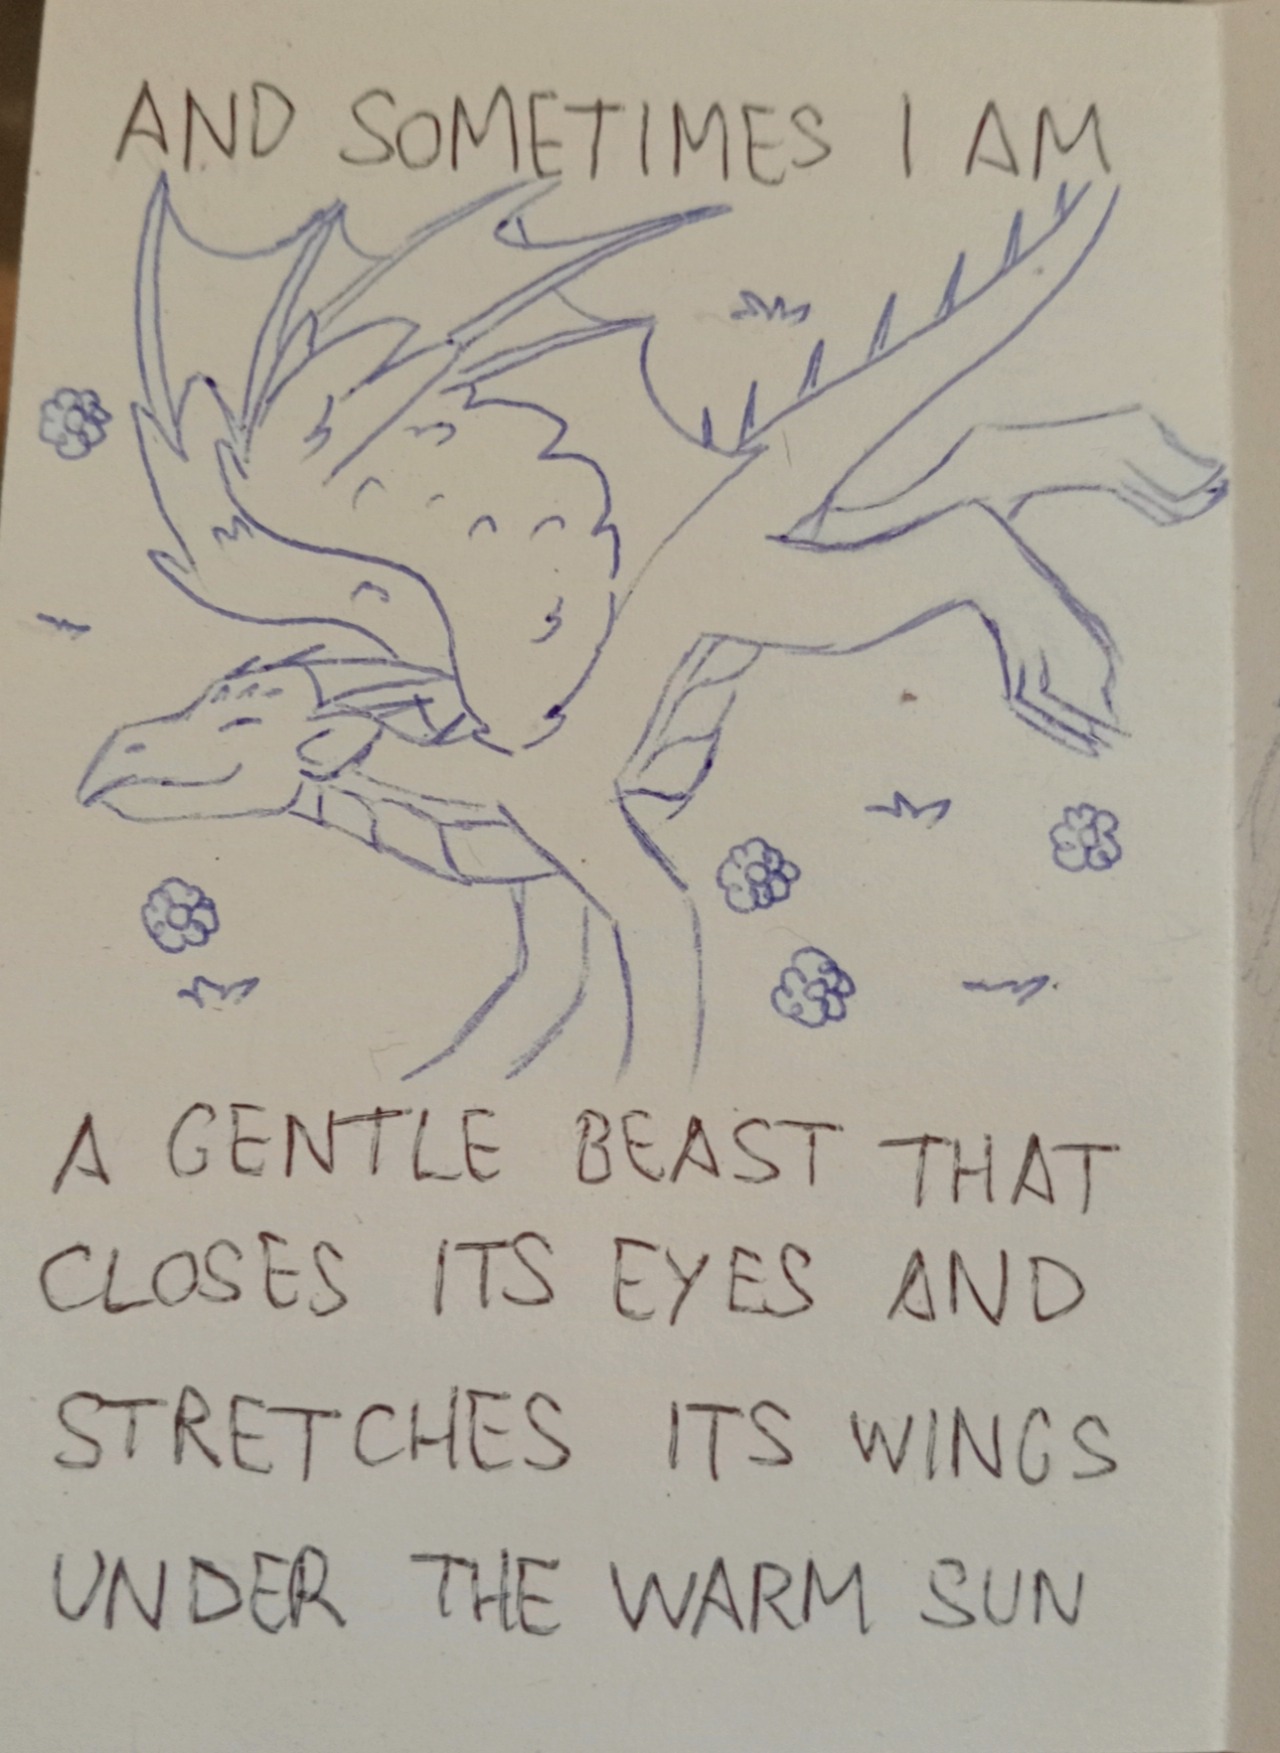 AND SOMETIMES I AM
A GENTLE BEAST THAT
CLOSES ITS EYES AND
STRETCHES ITS WINGS
UNDER THE WARM SUN